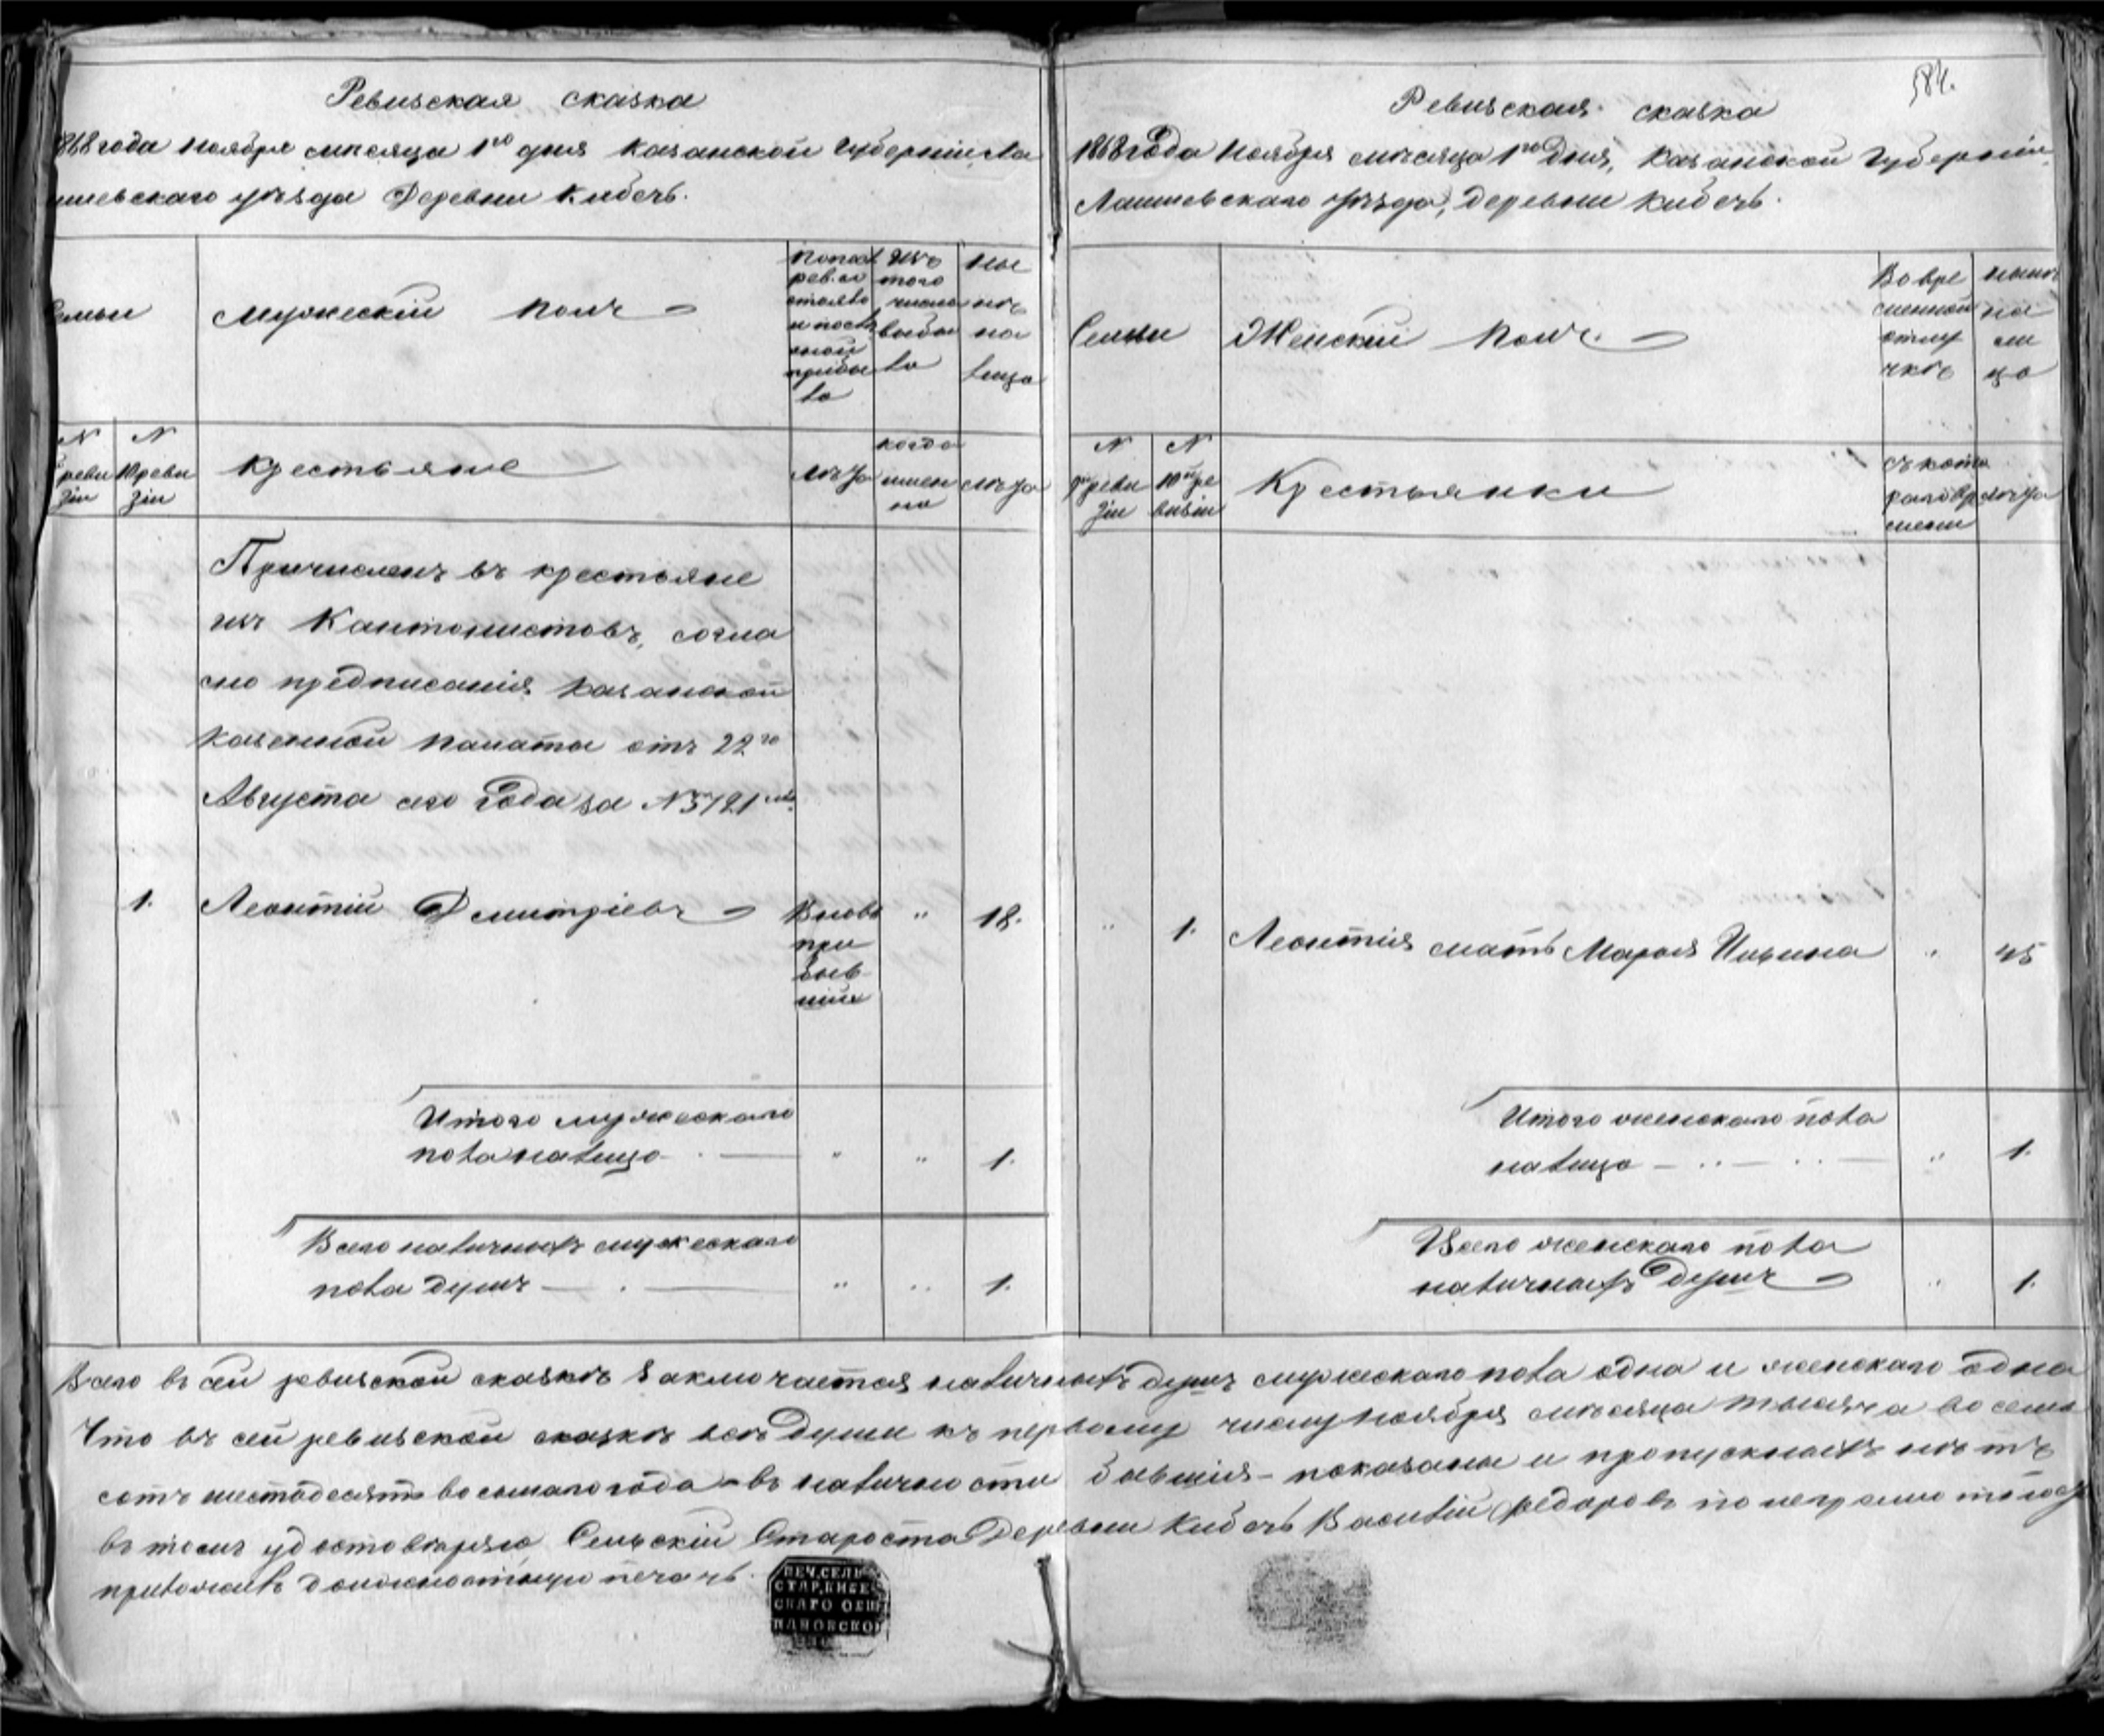 Ревизская сказка
868 года ноября месяца 1го дня Казанской Губерніи, Ла
ишевскаго уѣзда Деревни Кибечь.
емьи
Мужескій полъ
По посл
рев. со
стояло
и послѣ
оной
прибы
ло
Изъ
того
числа
выбы
ло
Ны
нѣ
на
лицо
N
реви
зіи
N
10 реви
зіи
Крестьяне
лѣта
когда
имен
но
лѣта
Причисленъ въ крестьяне
изъ Кантонистовъ, согла
сно предписанія Казанской
Казенной Палаты отъ 22го
Августа сего Года за N 5721мъ.
1.
Леонтій Дмитріевъ
Вновь
при
быв
шій
"
18.
Итого мужескаго
пола налицо
" " 1.
Всего наличныхъ мужескаго
пола душъ
" " 1.
584.
Ревизская сказка
1868 года Ноября месяца 1го Дня, Казанской Губерніи
Лаишевскаго уѣзда, Деревни Кибечь.
Семьи
Женскій полъ.
Во вре
менной
отлу
чкѣ
нынѣ
на
ли
цо
N
9й реви
зіи
N
10й ре
визіи
Крестьянки
съ кото
раго вре
мени
лѣта
" 1.
Леонтія мать Марья Ильина
" 45
Итого женскаго пола
налицо
" 1.
Всего женскаго пола
наличныхъ Душъ
" 1.
Всего въ сей ревизской сказкѣ заключается наличныхъ душъ мужескаго пола одна и женскаго одна
Что въ сей ревизской сказкѣ всѣ Души къ первому числу Ноября месяца тысяча восемь
сотъ шестьдесятъ восьмаго года въ наличности бывшія показаны и пропускныхъ нѣтъ
въ томъ удостовѣряю Сельскій Староста Деревни Кибечь Василій Федоровъ по неграмотности
приложилъ должностную печать.
ПЕЧ. СЕЛЬ
СТАР. КИБЕ
СКАГО ОБЩ